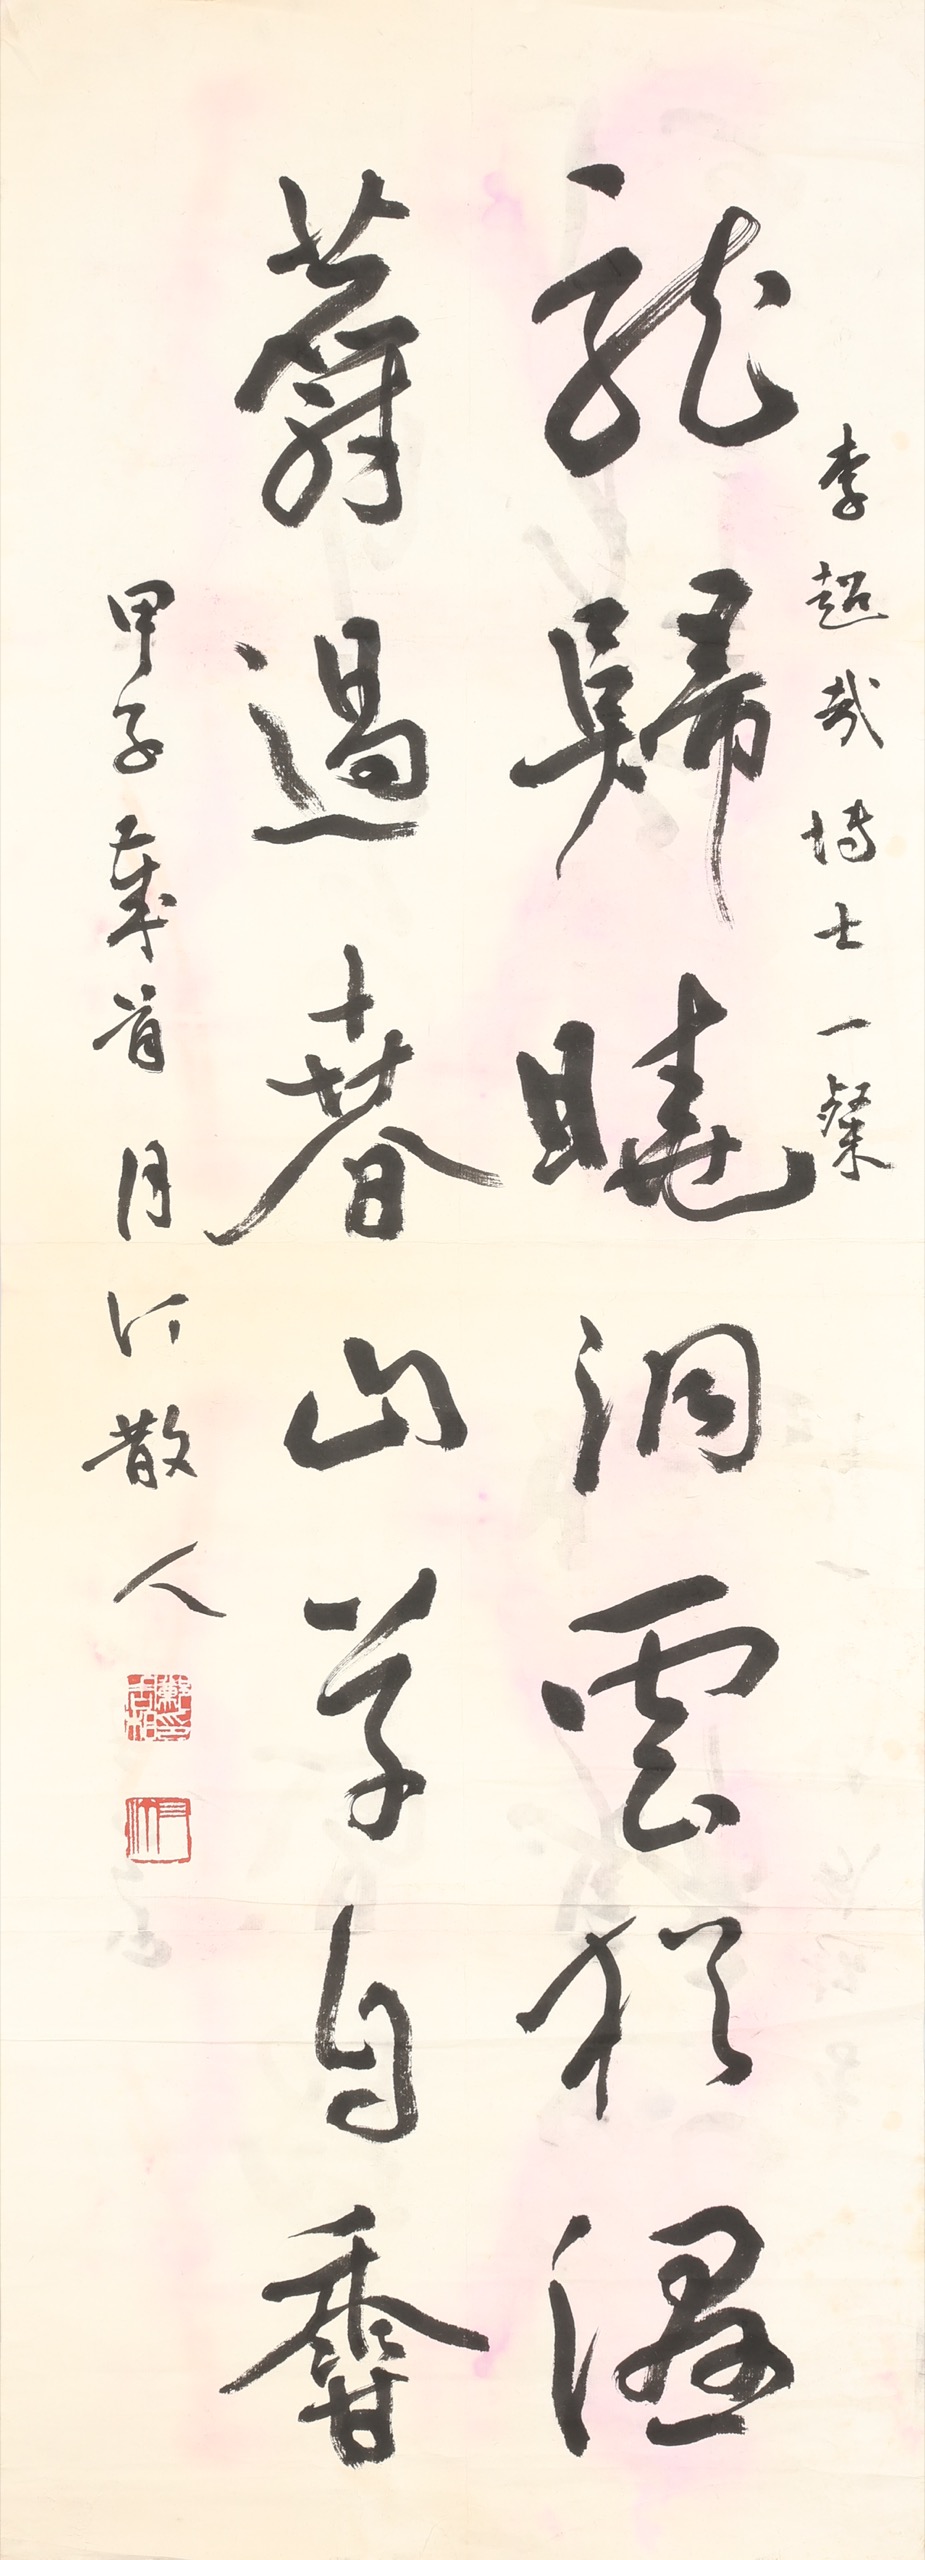 李超哉博士一粲
龍歸曉洞雲猶濕
麝過春山草自香
甲子歲首月汀散人
月汀